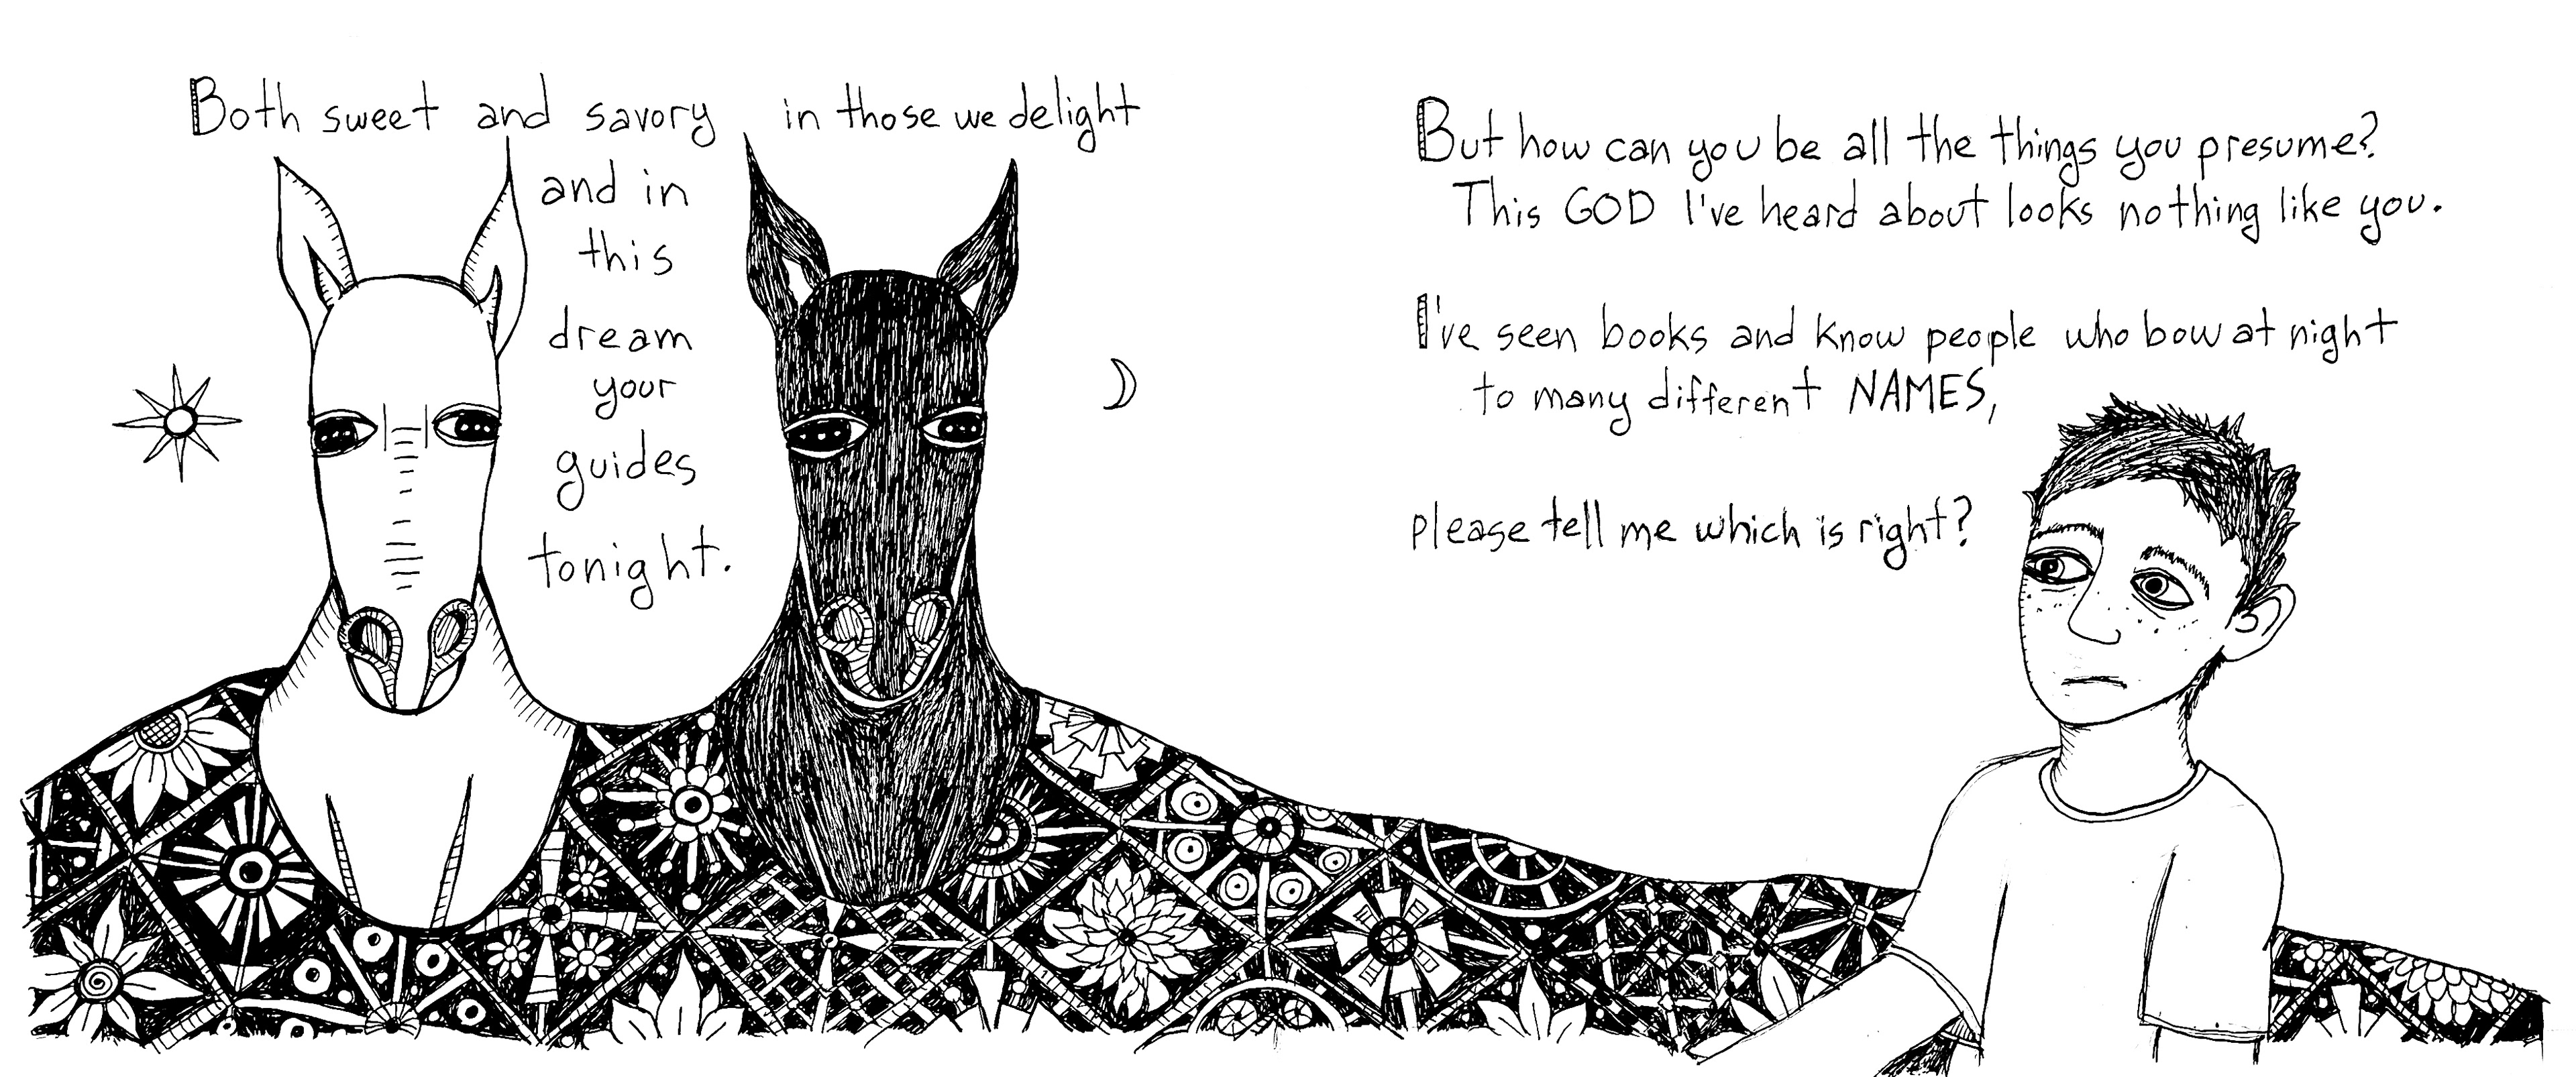 Both sweet and savory in those we delight
and in
this
dream
your
guides
tonight.
But how can you be all the things you presume?
This GOD I've heard about looks nothing like you.
I've seen books and know people who bow at night
to many different NAMES,
please tell me which is right?